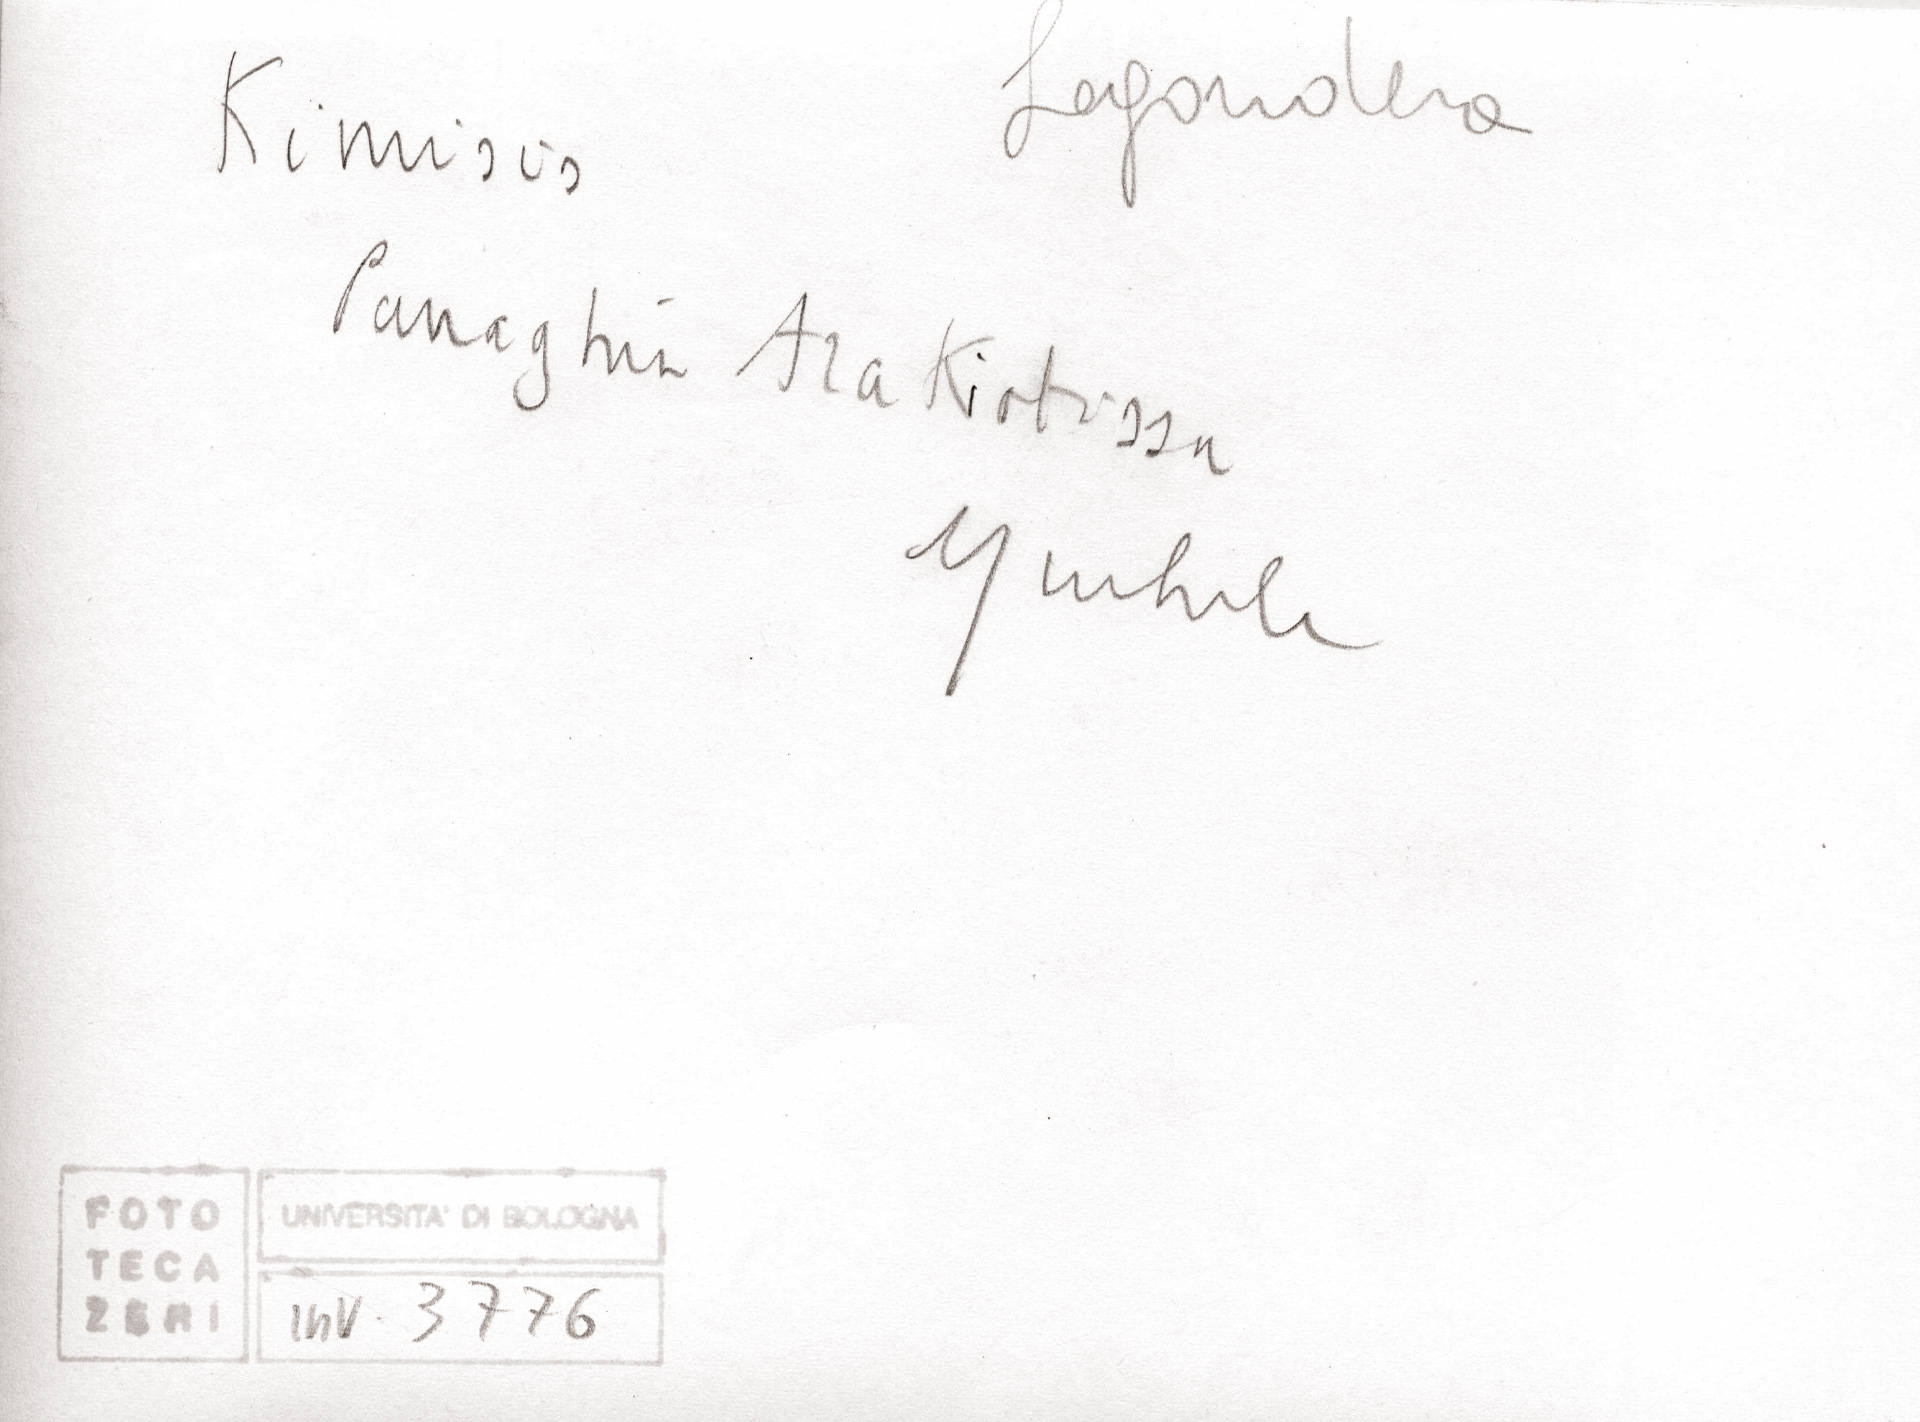 Lagoudera
Kimisis
Panaghia Arakiotissa
FOTO
TECA
ZERI
UNIVERSITA' DI BOLOGNA
inv. 3776